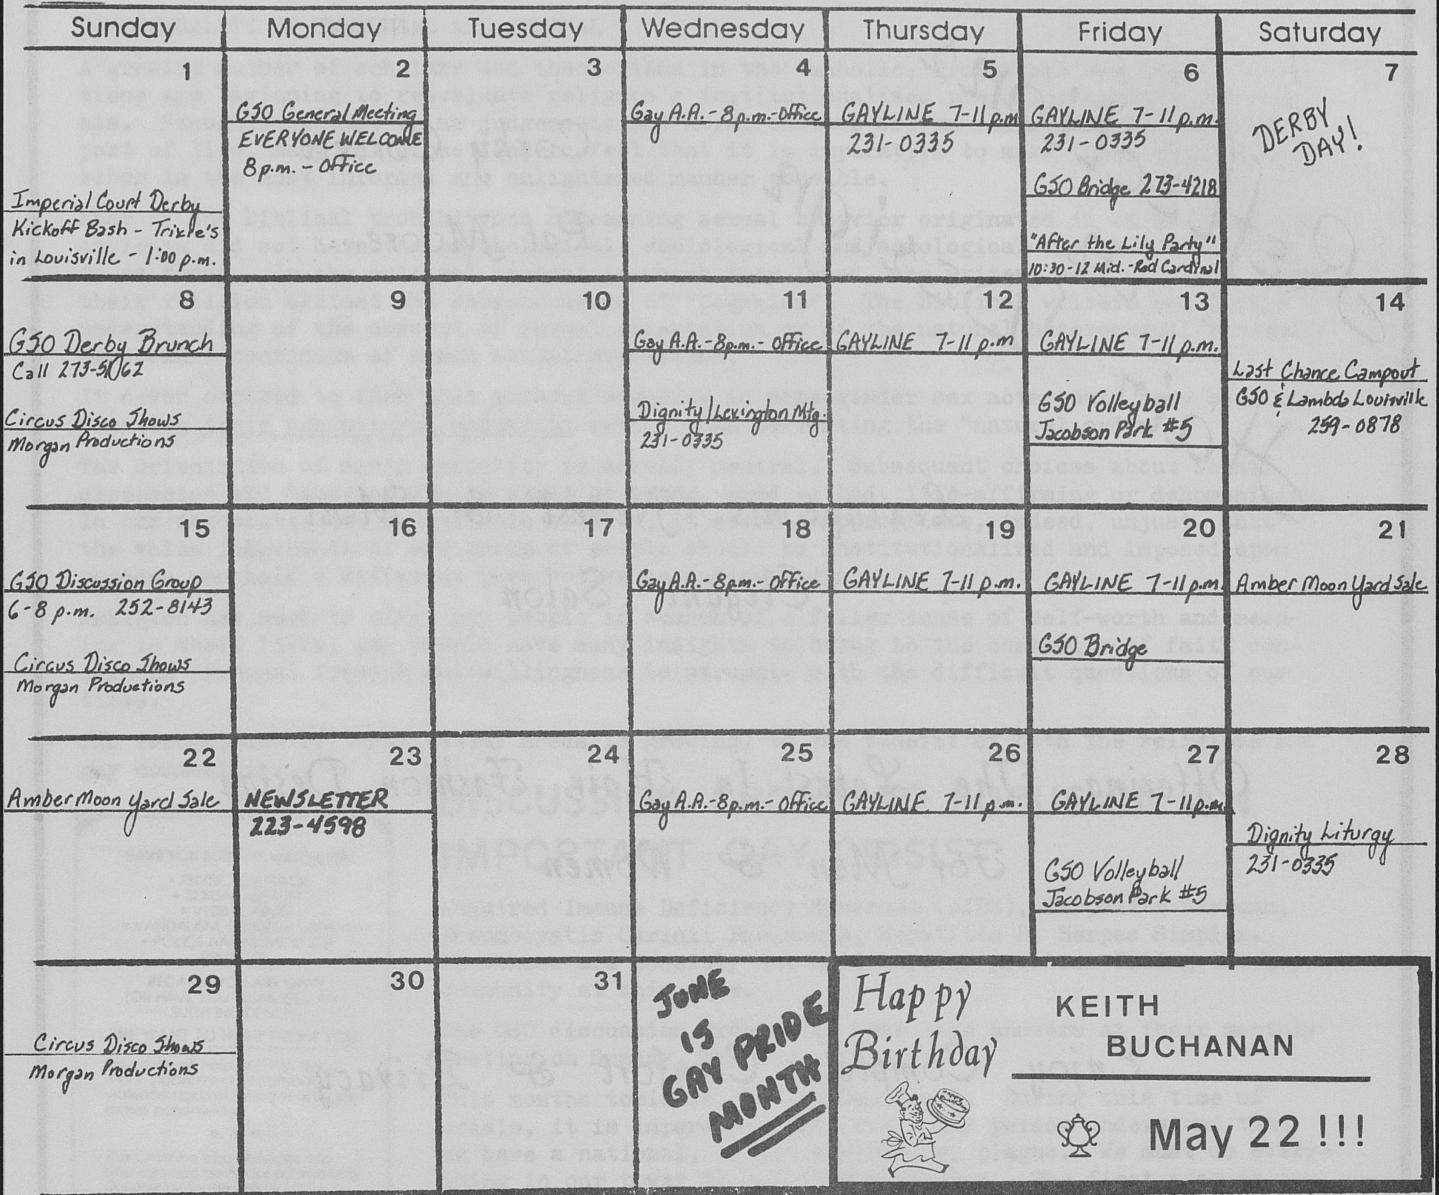 Sunday Monday Tuesday Wednesday Thursday Friday Saturday
1
Imperial Court Derby
Kickoff Bash - Trixie's
in Louisville - 1:00 p.m.
2
GSO General Meeting
EVERYONE WELCOME
8 p.m. - Office
3
4
Gay A.A. - 8p.m. - Office
5
GAYLINE 7-11 p.m
231-0335
6
GAYLINE 7-11 p.m.
231-0335
GSO Bridge 273-4218
"After the Lily Party"
10:30-12 Mid. - Red Cardinal
7
DERBY
DAY!
8
GSO Derby Brunch
Call 273-5062
Circus Disco Shows
Morgan Productions
9
10
11
Gay A.A. - 8p.m. - Office
Dignity/Lexington Mtg.
231-0335
12
GAYLINE 7-11 p.m
13
GAYLINE 7-11 p.m.
GSO Volleyball
Jacobson Park #5
14
Last Chance Campout
GSO & Lambda Louisville
259-0878
15
GSO Discussion Group
6-8 p.m. 252-8143
Circus Disco Shows
Morgan Productions
16
17
18
Gay A.A. - 8p.m. - Office
19
GAYLINE 7-11 p.m.
20
GAYLINE 7-11 p.m.
GSO Bridge
21
Amber Moon Yard Sale
22
Amber Moon Yard Sale
23
NEWSLETTER
223-4598
24
25
Gay A.A. - 8p.m. - Office
26
GAYLINE 7-11 p.m.
27
GAYLINE 7-11p.m.
GSO Volleyball
Jacobson Park #5
28
Dignity Liturgy
231-0335
29
Circus Disco Shows
Morgan Productions
30
31
JUNE
IS
GAY PRIDE
MONTH
Happy
Birthday
KEITH
BUCHANAN
May 22 !!!